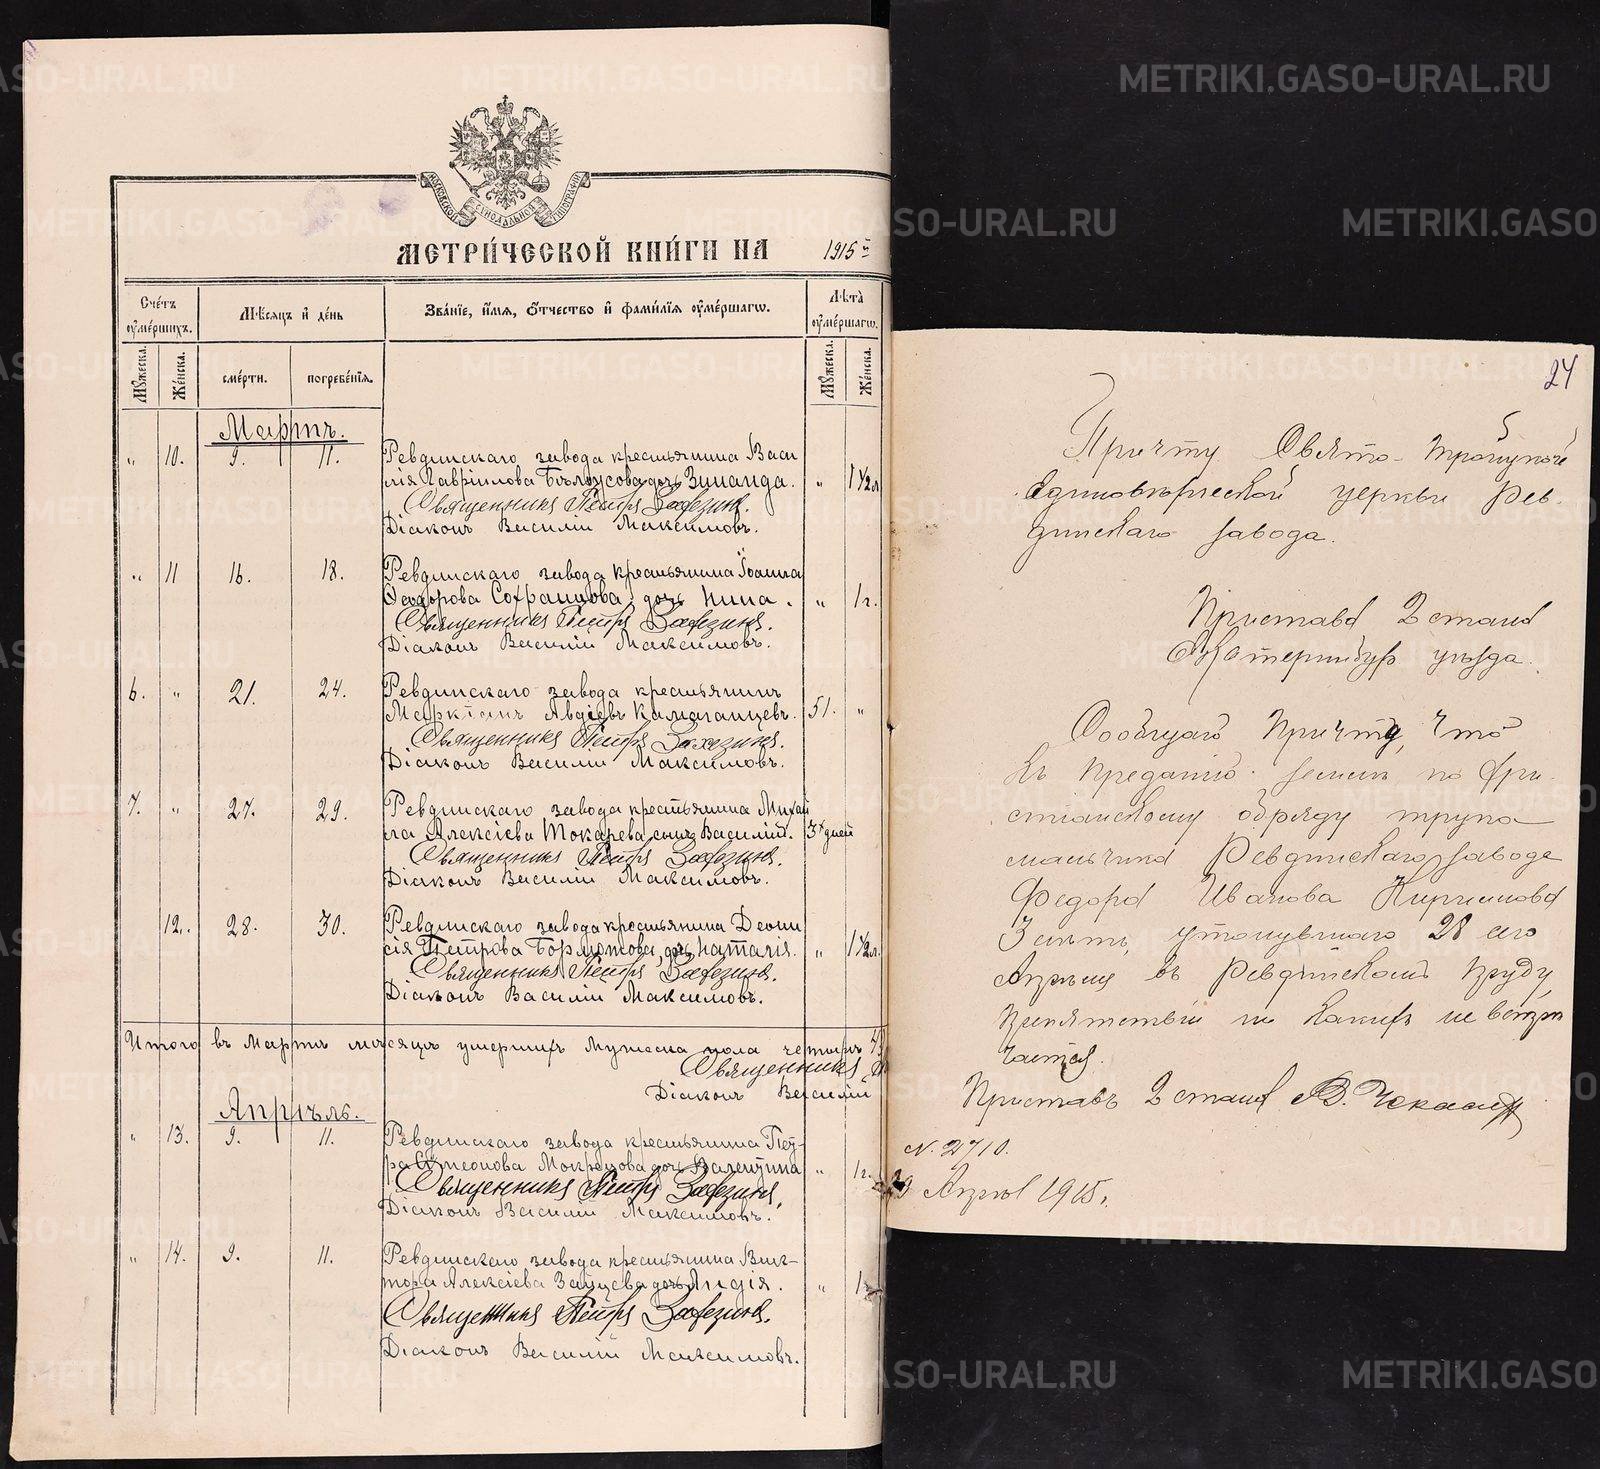 МОСКОВСКОЙ СИНОДАЛЬНОЙ ТИПОГРАФІИ
МЕТРИ́ЧЕСКОЙ КНИ́ГИ НА 1915 г.
Сче́тъ ᲂу҆ме́ршихъ.
Мꙋ́жеска.
Же́нска.
Мѣ́сяцъ и҆ де́нь
сме́рти.
погребе́нїѧ.
Зва́нїе, и҆́мѧ, ѻ҆́тчество и҆ фами́лїѧ ᲂу҆ме́ршагѡ.
Лѣ́та ᲂу҆ме́ршагѡ.
Мꙋ́жеска.
Же́нска.
Мартъ.
" 10. 9. 11. Ревдинскаго завода крестьянина Васи
лія Гавріилова Бѣлоусова дочь Зинаида. " 1 1/2 л
Священникъ Петръ Захезинъ.
Діаконъ Василій Максимовъ.
" 11 16. 18. Ревдинскаго завода крестьянина Іоанна
Ѳеодорова дочь Нина. " 1 г.
Священникъ Петръ Захезинъ.
Діаконъ Василій Максимовъ.
6. " 21. 24. Ревдинскаго завода крестьянинъ
Авдіевъ 51. "
Священникъ Петръ Захезинъ.
Діаконъ Василій Максимовъ.
7. " 27. 29. Ревдинскаго завода крестьянина Михаи
ла Алексіева Токарева сынъ Василій. дней
Священникъ Петръ Захезинъ.
Діаконъ Василій Максимовъ.
12. 28. 30. Ревдинскаго завода крестьянина Діони
сія Петрова Бормотова, дочь Наталія. " 1 1/2 л.
Священникъ Петръ Захезинъ.
Діаконъ Василій Максимовъ.
Итого въ Мартѣ мѣсяцѣ умершихъ Мужеска пола четыре
Священникъ
Діаконъ Василій
Апрѣль.
" 13. 9. 11. Ревдинскаго завода крестьянина Пет-
ра Симеонова Мокрецова дочь Валентина " 1 г.
Священникъ Петръ Захезинъ.
Діаконъ Василій Максимовъ.
" 14. 9. 11. Ревдинскаго завода крестьянина Вик-
тора Алексіева Зайцева дочь Лидія. "
Священникъ Петръ Захезинъ.
Діаконъ Василій Максимовъ.
24
Причту Свято-Троицкой
Единовѣрческой церкви Рев-
динскаго завода.
Пристава 2 стана
Екатеринбур уѣзда.
Сообщаю Причту, что
къ преданію земли по хри-
стіанскому обряду трупа
мальчика Ревдинскаго завода
Федора Иванова
утонувшаго 28 сего
Апрѣля въ Ревдинскомъ пруду
препятствій ни какихъ не встрѣ
чается.
Приставъ 2 стана
N. 2710.
Апрѣля 1915 г.
METRIKI.GASO-URAL.RU